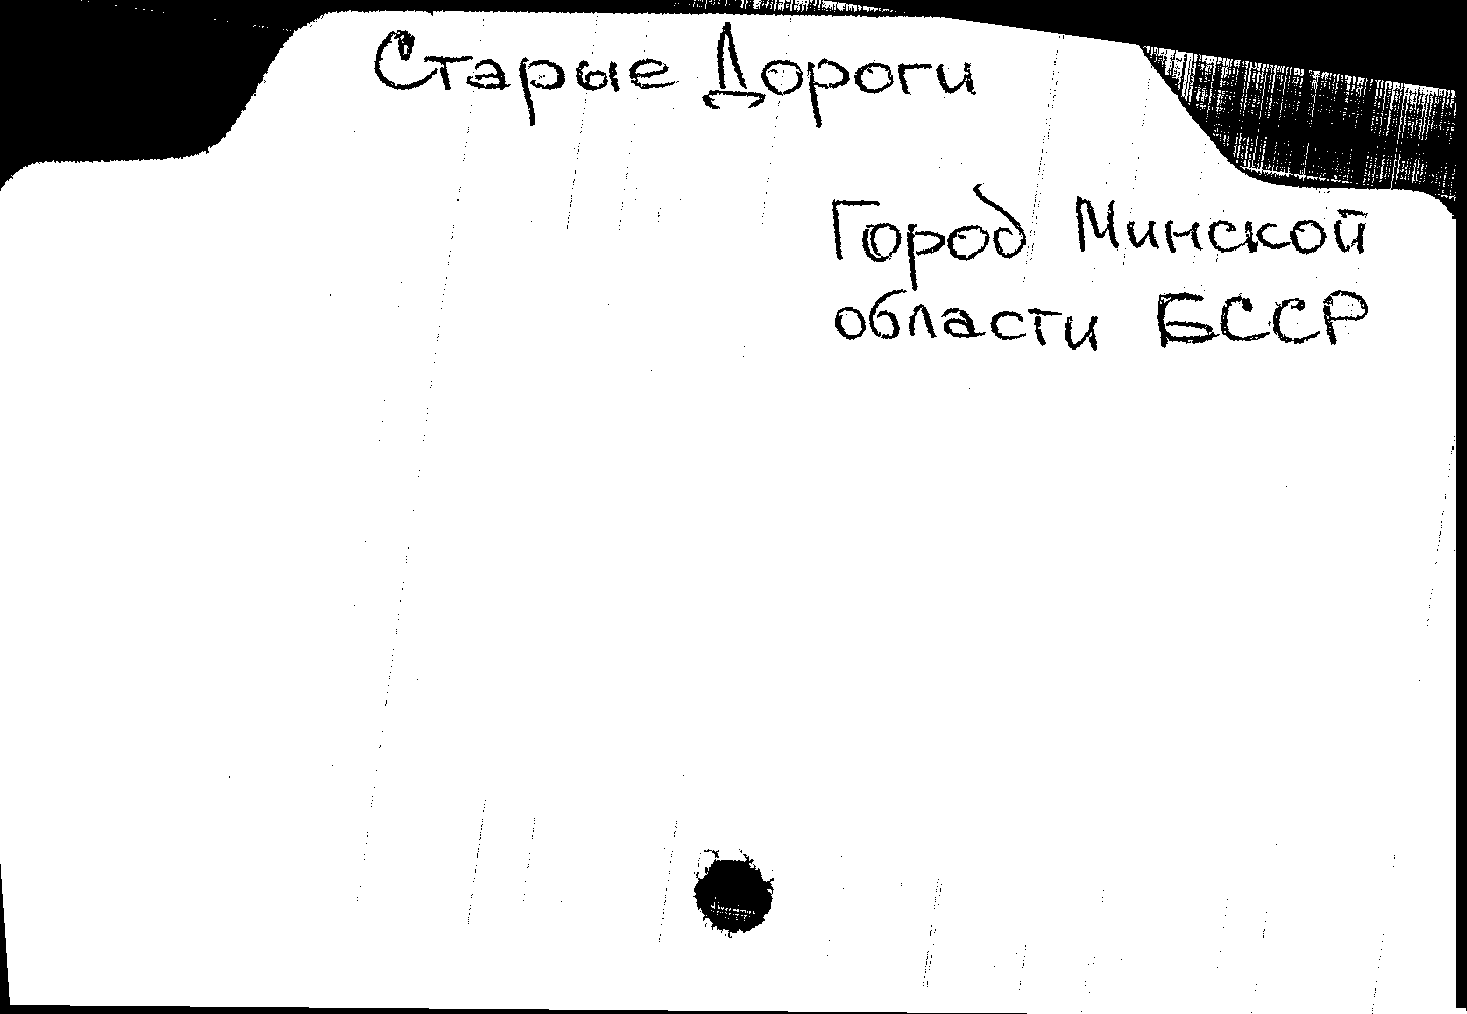 Старые Дороги
Город Минской
области БССР